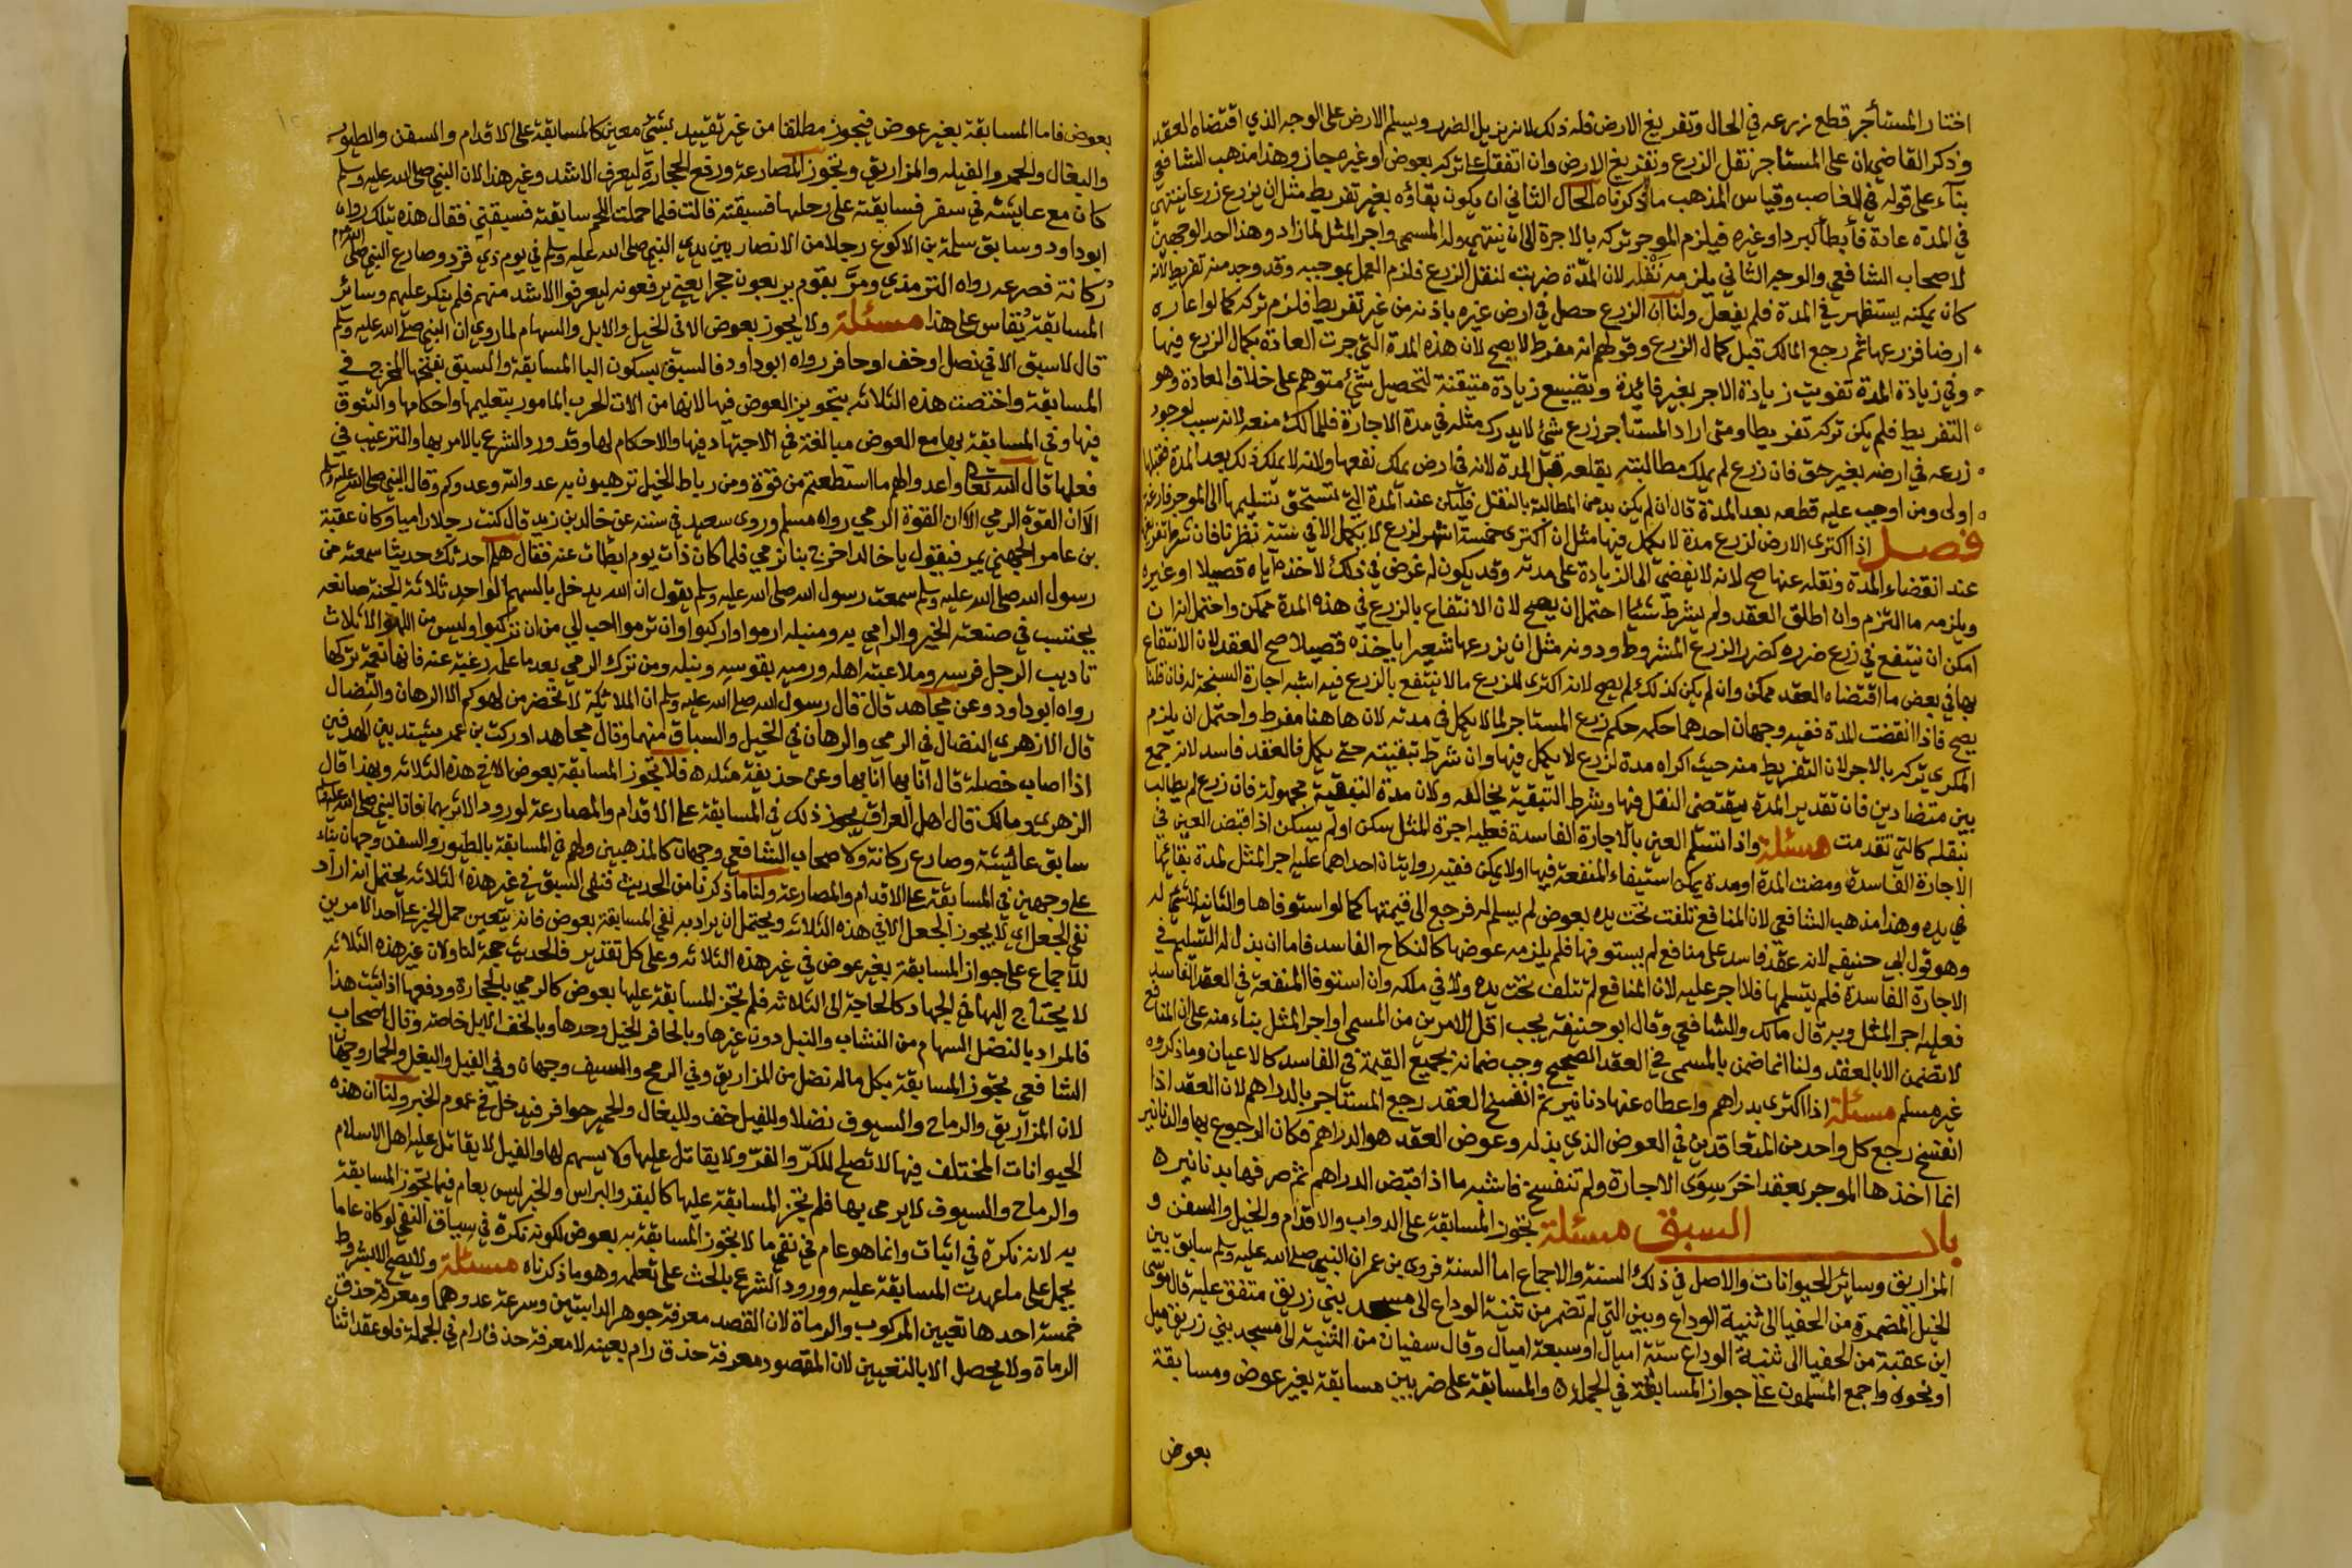 اختار المستأجر قطع زرعه في الحال وتفريغ الارض فله ذلك لانه يزيل الضرر ويسلم الارض على الوجه الذي اقتضاه العقد
وذكر القاضي ان على المستاجر نقل الزرع وتفريغ الارض وان اتفقا على تركه بعوض او غيره جاز وهذا مذهب الشافعي
بناء على قوله في الغاصب وقياس المذهب ما ذكرناه الحال الثاني ان يكون بقاؤه بغير تفريط مثل ان يزرع زرعا ينتهي
في المدة عادة فأبطأ لبرد او غيره فيلزم الموجر تركه بالاجرة الى ان ينتهي وله المسمى واجر المثل لما زاد وهذا احد الوجهين
لاصحاب الشافعي والوجه الثاني يلزمه نقله لان المدة ضربت لنقل الزرع فلزم العمل بموجبه وقد وجد منه تفريط لانه
كان يمكنه يستظهر في المدة فلم يفعل ولنا ان الزرع حصل في ارض غيره باذنه من غير تفريط فلزم تركه كما لو اعاره
ارضا فزرعها ثم رجع المالك قبل كمال الزرع وقولهم انه مفرط لا يصح لان هذه المدة التي جرت العادة بكمال الزرع فيها
وفي زيادة المدة تفويت زيادة الاجر بغير فائدة وتضييع زيادة متيقنة لتحصيل شئ متوهم على خلاف العادة وهو
التفريط فلم يكن تركه تفريطا ومتى اراد المستأجر زرع شئ لا يدرك مثله في مدة الاجارة فللمالك منعه لانه سبب لوجود
زرعه في ارضه بغير حق فان زرع لم يملك مطالبته بقلعه قبل المدة لانه في ارض يملك نفعها ولانه لا يملك ذلك بعد المدة فقبلها
اولى ومن اوجب عليه قطعه بعد المدة قال ان لم يكن بد من المطالبة بالنقل فليكن عند المدة التي تستحق تسليمها الى الموجر فارغة
فصل اذا اكترى الارض لزرع مدة لا يكمل فيها مثل ان اكترى خمسة اشهر لزرع لا يكمل الا في سنة نظرنا فان شرط تفريغها
عند انقضاء المدة ونقله عنها صح لانه لا يفضي الى الزيادة على مدته وقد يكون له غرض في ذلك لاخذه اياه قصيلا او غيره
ويلزمه ما التزم وان اطلق العقد ولم يشرط شئا احتمل ان يصح لان الانتفاع بالزرع في هذه المدة ممكن واحتمل انه ان
امكن ان ينتفع في زرع ضرره كضرر الزرع المشروط ودونه مثل ان يزرعها شعيرا ياخذه قصيلا صح العقد لان الانتفاع
بها في بعض ما اقتضاه العقد ممكن وان لم يكن كذلك لم يصح لانه اكترى للزرع ما لا ينتفع بالزرع فيه اشبه اجارة السبخة له فان قلنا
يصح فاذا انقضت المدة ففيه وجهان احدهما حكمه حكم زرع المستاجر لما لا يكمل في مدته لان هاهنا مفرط واحتمل ان يلزم
المكري تركه بالاجر لان التفريط منه حيث اكراه مدة لزرع لا يكمل فيها وان شرط تبقيته حتى يكمل فالعقد فاسد لانه جمع
بين متضادين فان تقدير المدة يقتضي النقل فيها وشرط التبقية يخالفه ولان مدة التبقية مجهولة فان زرع لم يطالب
بنقله كالتي تقدمت مسئلة واذا تسلم العين بالاجارة الفاسدة فعليه اجرة المثل سكن او لم يسكن اذا قبض العين في
الاجارة الفاسدة ومضت المدة او مدة يمكن استيفاء المنفعة فيها او لا يمكن ففيه روايتان احداهما عليه اجر المثل لمدة بقائها
في يده وهذا مذهب الشافعي لان المنافع تلفت تحت يده بعوض لم يسلم له فرجع الى قيمتها كما لو استوفاها والثانية لا شئ له
وهو قول ابي حنيفه لانه عقد فاسد على منافع لم يستوفها فلم يلزمه عوضها كالنكاح الفاسد فاما ان بذل له التسليم في
الاجارة الفاسدة فلم يتسلمها فلا اجر عليه لان المنافع لم تتلف تحت يده ولا في ملكه وان استوفا المنفعة في العقد الفاسد
فعليه اجر المثل وبه قال مالك والشافعي وقال ابو حنيفة يجب اقل الامرين من المسمى او اجر المثل بناء منه على ان المنافع
لا تضمن الا بالعقد ولنا انما ضمن بالمسمى في العقد الصحيح وجب ضمانه بجميع القيمة في الفاسد كالاعيان وما ذكروه
غير مسلم مسئلة اذا اكترى بدراهم واعطاه عنها دنانير ثم انفسخ العقد رجع المستأجر بالدراهم لان العقد اذا
انفسخ رجع كل واحد من المتعاقدين في العوض الذي بذله وعوض العقد هو الدراهم فكان الرجوع بها والدنانير
انما اخذها الموجر بعقد اخر سوى الاجارة ولم تنفسخ فاشبه ما اذا قبض الدراهم ثم صرفها بدنانيره
باب السبق مسئلة تجوز المسابقة على الدواب والاقدام والخيل والسفن و
المزاريق وسائر الحيوانات والاصل في ذلك السنة والاجماع اما السنة فروى بن عمر ان النبي صلى الله عليه وسلم سابق بين
الخيل المضمرة من الحفيا الى ثنية الوداع وبين التي لم تضمر من ثنية الوداع الى مسجد بني زريق متفق عليه قال موسى
ابن عقبة من الحفيا الى ثنية الوداع ستة اميال او سبعة اميال وقال سفيان من الثنية الى مسجد بني زريق ميل
او نحوه واجمع المسلمون على جواز المسابقة في الجملة والمسابقة على ضربين مسابقة بغير عوض ومسابقة
بعوض
بعوض فاما المسابقة بغير عوض فيجوز مطلقا من غير تقييد بشئ معين كالمسابقة على الاقدام والسفن والطيور
والبغال والحمر والفيلة والمزاريق وتجوز المصارعة ورفع الحجارة ليعرف الاشد وغير هذا لان النبي صلى الله عليه وسلم
كان مع عايشة في سفر فسابقته على رجلها فسبقته قالت فلما حملت اللحم سابقته فسبقني فقال هذه بتلك رواه
ابو داود وسابق سلمة بن الاكوع رجلا من الانصار بين يدي النبي صلى الله عليه وسلم في يوم ذي قرد وصارع النبي صلى الله عليه وسلم
ركانة فصرعه رواه الترمذي ومر بقوم يربعون حجرا يعني يرفعونه ليعرفوا الاشد منهم فلم ينكر عليهم وسائر
المسابقة يقاس على هذا مسئلة ولا يجوز بعوض الا في الخيل والابل والسهام لما روي ان النبي صلى الله عليه وسلم
قال لا سبق الا في نصل او خف او حافر رواه ابو داود فالسبق بسكون البا المسابقة والسبق بفتحها المخرج في
المسابقة واختصت هذه الثلاثه بتجويز العوض فيها لانها من الات الحرب المامور بتعليمها واحكامها والتفوق
فيها وفي المسابقة بها مع العوض مبالغة في الاجتهاد فيها والاحكام لها وقد ورد الشرع بالامر بها والترغيب في
فعلها قال الله تعالى واعدوا لهم ما استطعتم من قوة ومن رباط الخيل ترهبون به عدو الله وعدوكم وقال النبي صلى الله عليه وسلم
الا ان القوة الرمي الا ان القوة الرمي رواه مسلم وروى سعيد في سننه عن خالد بن زيد قال كنت رجلا راميا وكان عقبة
بن عامر الجهني يمر فيقول يا خالد اخرج بنا نرمي فلما كان ذات يوم ابطات عنه فقال هلم احدثك حديثا سمعته من
رسول الله صلى الله عليه وسلم سمعت رسول الله صلى الله عليه وسلم يقول ان الله يدخل بالسهم الواحد ثلاثة الجنة صانعه
يحتسب في صنعته الخير والرامي به ومنبله ارموا واركبوا وان ترموا احب الي من ان تركبوا وليس من اللهو الا ثلاث
تاديب الرجل فرسه وملاعبته اهله ورميه بقوسه ونبله ومن ترك الرمي بعد ما علمه رغبة عنه فانها نعمة تركها
رواه ابو داود وعن مجاهد قال قال رسول الله صلى الله عليه وسلم ان الملائكة لا تحضر من لهوكم الا الرهان والنضال
قال الازهري النضال في الرمي والرهان في الخيل والسباق منهما وقال مجاهد ادركت بن عمر يشتد بين الهدفين
اذا اصاب خصلة قال انا بها انا بها وعن حذيفة مثله فلا تجوز المسابقة بعوض الا في هذه الثلاثه وبهذا قال
الزهري ومالك قال اهل العراق يجوز ذلك في المسابقة على الاقدام والمصارعة لورود الاثر بهما فان النبي صلى الله عليه وسلم
سابق عائشة وصارع ركانة ولاصحاب الشافعي وجهان كالمذهبين ولهم في المسابقة بالطيور والسفن وجهان بناء
على وجهين في المسابقة على الاقدام والمصارعة ولنا ما ذكرنا من الحديث فنفى السبق في غير هذه الثلاثه يحتمل انه اراد
نفي الجعل اي لا يجوز الجعل الا في هذه الثلاثه ويحتمل ان يراد به نفي المسابقة بعوض فانه يتعين حمل الخبر على احد الامرين
للاجماع على جواز المسابقة بغير عوض في غير هذه الثلاثه وعلى كل تقدير فالحديث حجة لنا ولان غير هذه الثلاثه
لا يحتاج اليها في الجهاد كالحاجة الى الثلاثه فلم تجز المسابقة عليها بعوض كالرمي بالحجارة ورفعها اذا ثبت هذا
فالمراد بالنصل السهام من النشاب والنبل دون غيرها وبالحافر الخيل وحدها وبالخف الابل خاصة وقال اصحاب
الشافعي تجوز المسابقة بكل ما له نصل من المزاريق وفي الرمح والسيف وجهان وفي الفيل والبغل والحمار وجهان
لان المزاريق والرماح والسيوف نصلا وللفيل خف وللبغال والحمير حوافر فيدخل في عموم الخبر ولنا ان هذه
الحيوانات المختلف فيها لا تصلح للكر والفر ولا يقاتل عليها ولا يسهم لها والفيل لا يقاتل عليه اهل الاسلام
والرماح والسيوف لا يرمى بها فلم تجز المسابقة عليها كالبقر والبراس والخبر ليس بعام فيما تجوز المسابقة
به لانه نكرة في اثبات وانما هو عام في نفي ما لا تجوز المسابقة به بعوض لكونه نكرة في سياق النفي لو كان عاما
يحمل على ما عهدت المسابقة عليه وورود الشرع بالحث على تعلمه وهو ما ذكرناه مسئلة ولا يصح الا بشروط
خمسة احدها تعيين المركوب والرماة لان القصد معرفة جوهر الدابتين وسرعة عدوهما ومعرفة حذق
الرماة ولا يحصل الا بالتعيين لان المقصود معرفة حذق رام بعينه لا معرفة حذق رام في الجملة فلو عقد اثنا